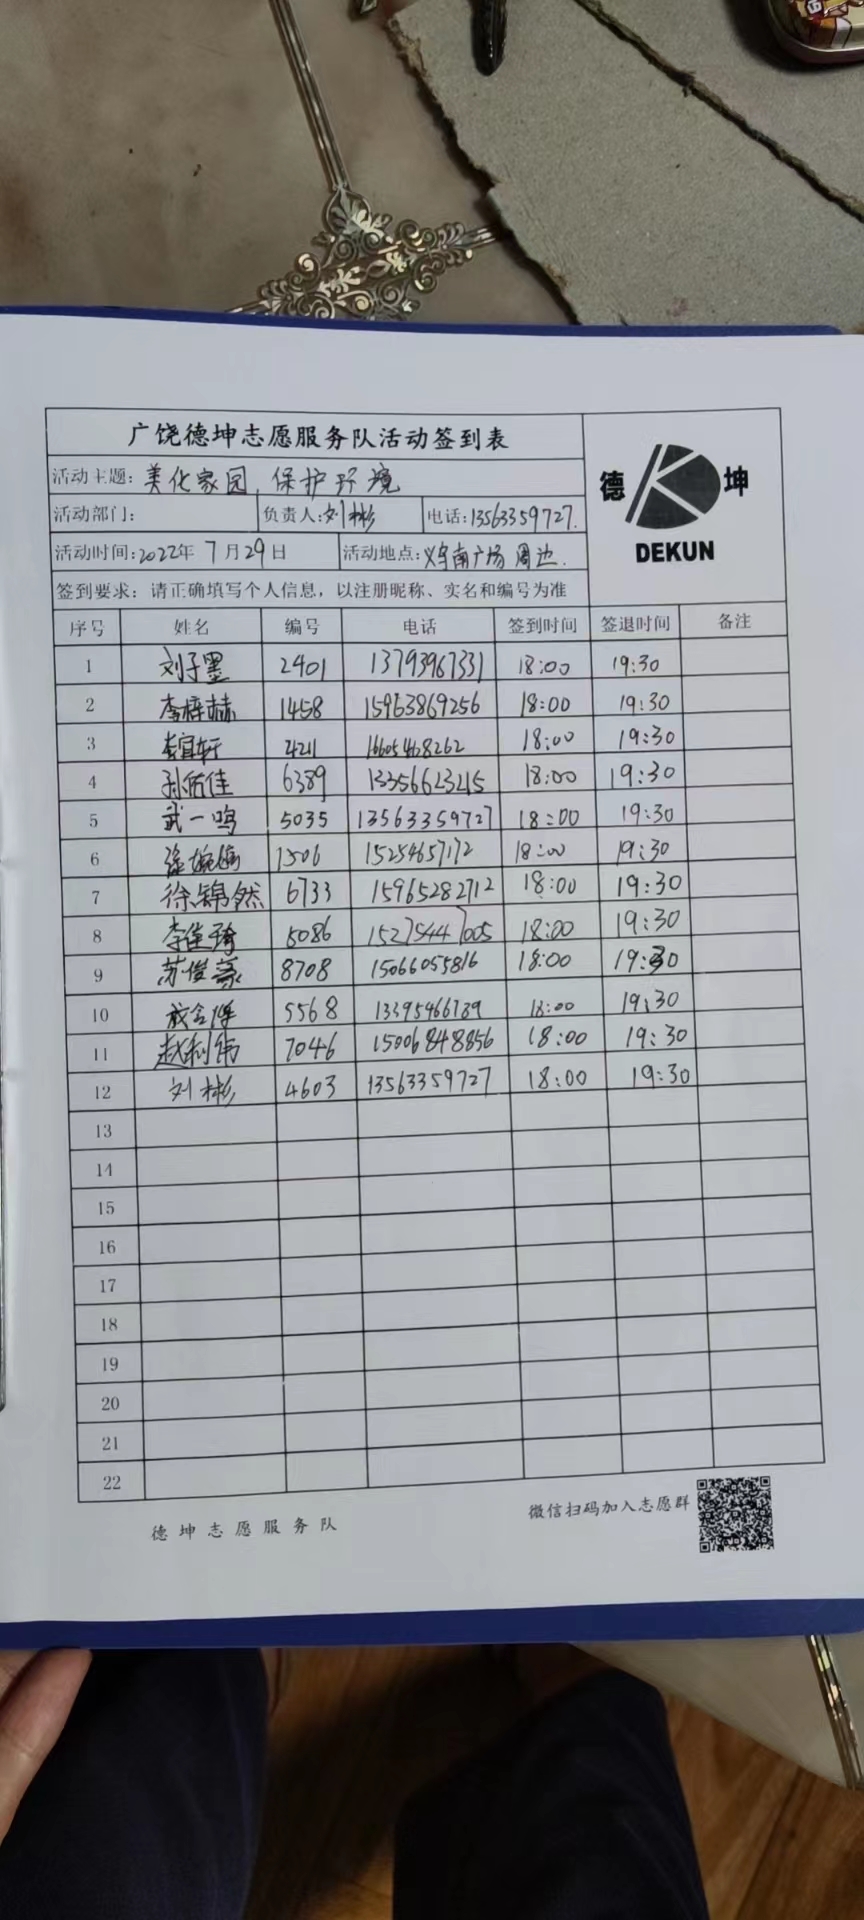 广饶德坤志愿服务队活动签到表
德 坤
DEKUN
活动主题: 美化家园,保护环境
活动部门: 负责人:刘彬 电话:13563359727.
活动时间:2022年 7月29日 活动地点: 南广场周边.
签到要求: 请正确填写个人信息, 以注册昵称、实名和编号为准
序号 姓名 编号 电话 签到时间 签退时间 备注
1 刘子墨 2401 13793967331 18:00 19:30
2 李梓赫 1458 15963869256 18:00 19:30
3 李宜轩 4211 16605468262 18:00 19:30
4 孙佑佳 6389 13356623215 18:00 19:30
5 武一鸣 5035 13563359727 18:00 19:30
6 1506 15254657172 18:00 19:30
7 徐锦然 6733 15965282712 18:00 19:30
8 李佳琦 5086 15275447005 18:00 19:30
9 苏俊豪 8708 15066055816 18:00 19:30
10 5568 13395466789 18:00 19:30
11 赵利伟 7046 15006848856 18:00 19:30
12 刘彬 4603 13563359727 18:00 19:30
13
14
15
16
17
18
19
20
21
22
德坤志愿服务队 微信扫码加入志愿群